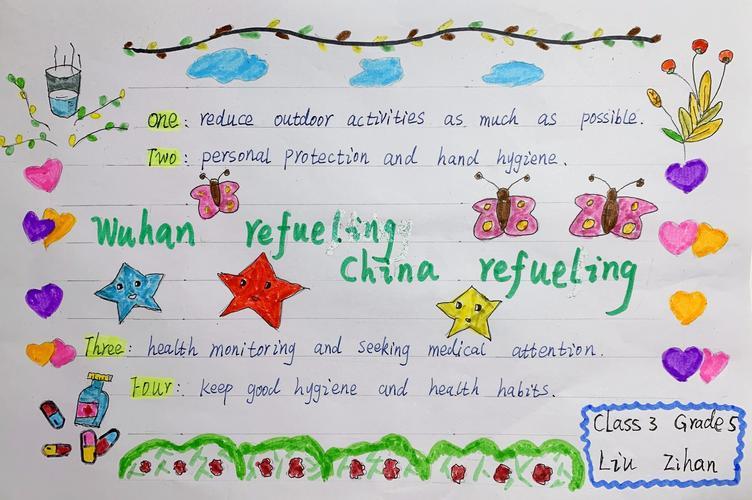 One: reduce outdoor activities as much as possible.
Two: personal protection and hand hygiene.
Wuhan refueling
China refueling
Three: health monitoring and seeking medical attention.
Four: keep good hygiene and health habits.
Class 3 Grade 5
Liu Zihan